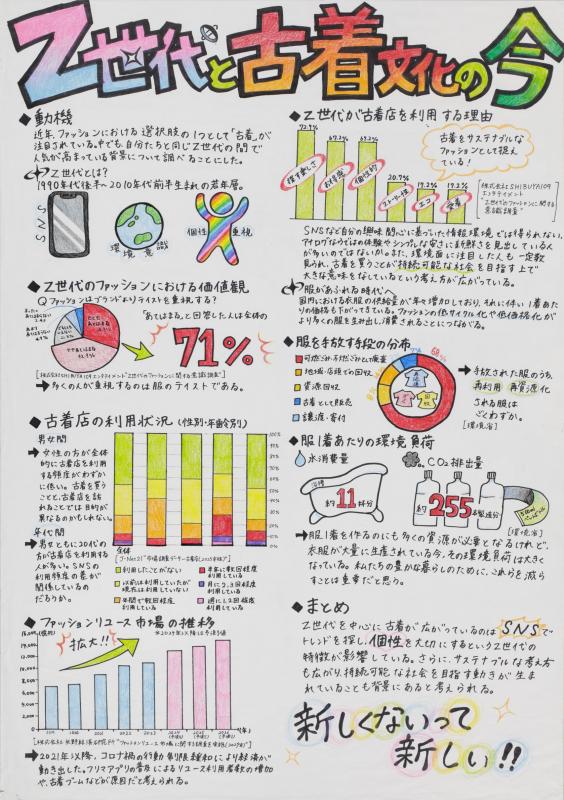 Z世代と古着文化の今
◆動機
近年、ファッションにおける選択肢の1つとして「古着」が
注目されている。中でも、自分たちと同じZ世代の間で
人気が高まっている背景について調べることにした。
Z世代とは?
1990年代後半〜2010年代前半生まれの若年層。
SNS
環境意識
個性重視
◆Z世代のファッションにおける価値観
Q ファッションはブランドよりテイストを重視する?
"あてはまる"と回答した人は全体の
71%
➡多くの人が重視するのは服のテイストである。
◆古着店の利用状況(性別・年齢別)
男女間
➡女性の方が全体
的に古着店を利用
する頻度がわずか
に低い。古着を買う
ことと、古着店を訪
れることでは目的が
異なるのかもしれない。
年代間
➡男女ともに20代の
方が古着店を利用す
る人が多い。SNSの
利用頻度の差が
関係しているの
だろうか。
全体
利用したことがない
以前は利用していたが
現在は利用していない
年間で数回程度
利用している
半年に数回程度
利用している
月に2、3回程度
利用している
週に1、2回程度
利用している
◆ファッションリユース市場の推移
拡大!!
➡2021年以降、コロナ禍の行動制限緩和により経済が
動き出した。フリマアプリの普及によるリユース利用者数の増加
や、古着ブームなどが原因だと考えられる。
◆Z世代が古着店を利用する理由
72.9%
69.2%
69.2%
20.7%
19.2%
19.2%
個性的
エコ
古着をサステナブルな
ファッションとして捉え
ている!
[株式会社SHIBUYA109
エンタテイメント
"Z世代のファッションに関する
意識調査"]
SNSなど自分の興味関心に基づいた情報環境では得られない、
アナログならではの体験やシンプルな安さに新鮮さを見出している人
が多いのではないか。また、環境面に注目した人も一定数
見られ、古着を買うことが持続可能な社会を目指す上で
大きな意味をなしているという考え方が広がっている。
服があふれる時代へ
国内における衣服の供給量が年々増加しており、それに伴い1着あた
りの価格も下がってきている。ファッションの低サイクル化や低価格化が
より多くの服を生み出し、消費されることにつながる。
◆服を手放す手段の分布
可燃ごみ・不燃ごみとして廃棄
地域・店頭での回収
資源回収
古着として販売
譲渡・寄付
68%
再資源
回収
➡手放された服のうち、
再利用 再資源化
される服は
ごくわずか。
[環境省]
◆服1着あたりの環境負荷
水消費量
浴槽
約11杯分
CO₂排出量
約255本製造分
500mlペットボトル
[環境省]
➡服1着を作るのにも多くの資源が必要となるけれど、
衣服が大量に生産されている今、その環境負荷は大きく
なっている。私たちの豊かな暮らしのために、これらを減ら
すことは重要だと思う。
◆まとめ
Z世代を中心に古着が広がっているのは、SNSで
トレンドを探し、個性を大切にするというZ世代の
特徴が影響している。さらに、サステナブルな考え方
も広がり、持続可能な社会を目指す動きが生ま
れていることも背景にあると考えられる。
新しくないって
新しい!!